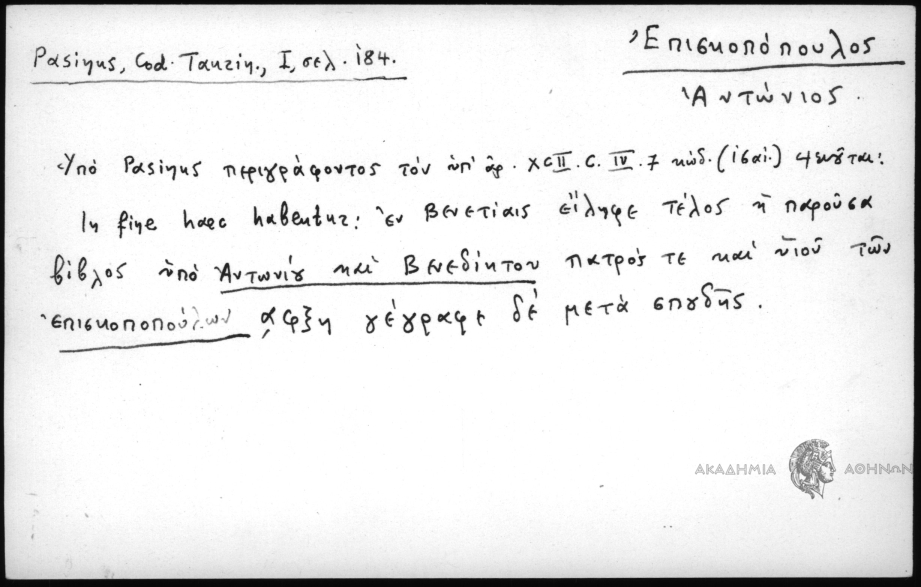 Pasinus, Cod. Taurin., I, σελ. 184.
Ἐπισκοπόπουλος
Ἀντώνιος.
Ὑπό Pasinus περιγράφοντος τόν ὑπ' ἀρ. XCII. C. IV. 7 κώδ. (ἰσαι.)
In fine haec habentur: ἐν Βενετίαις εἴληφε τέλος ἡ παροῦσα
βίβλος ὑπό Ἀντωνίου καί Βενεδίκτου πατρός τε καί υἱοῦ τῶν
Ἐπισκοποπούλων ͵αφξη γέγραφε δέ μετά σπουδῆς.
ΑΚΑΔΗΜΙΑ ΑΘΗΝΩΝ